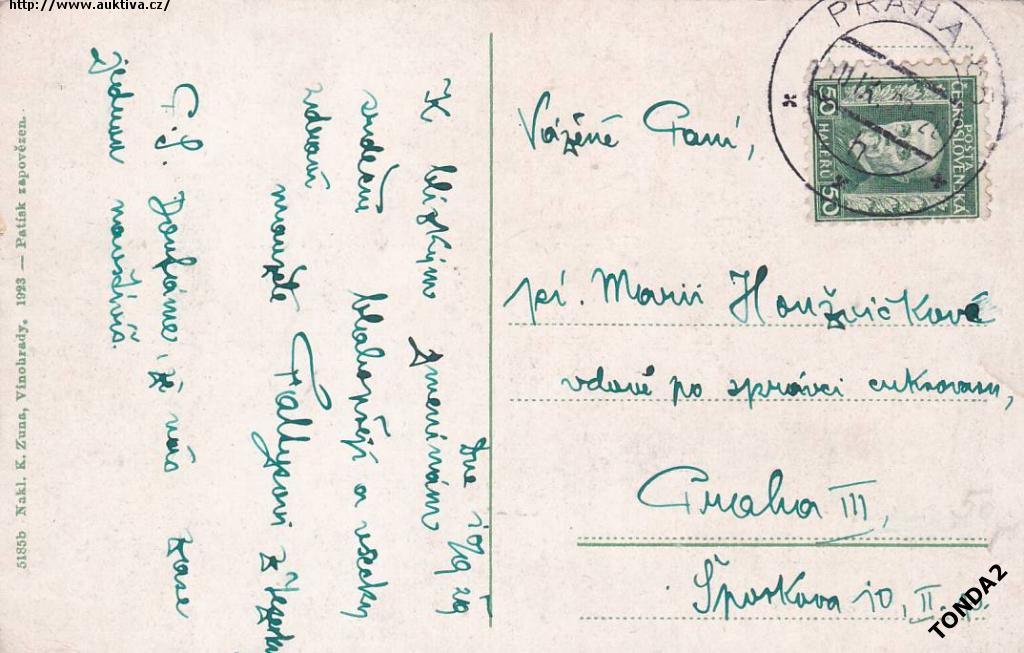 http://www.auktiva.cz/
PRAHA
POSTA
ČESKOSLOVENSKÁ
50 HALÉŘŮ 50
5185b Nakl. K. Zuna, Vinohrady, 1923 — Patisk zapovězen.
Dne 10/9 29
K blízkým jmeninám
srdečně blahopřejí a všecky
zdraví
manželé
P.S. Doufáme, že nás zase
jednou navštívíš.
Vážené Paní,
pí. Marii Houžvičková
vdově po správci cukrovaru,
Praha III,
Šporkova 10, II. p.
TONDA2